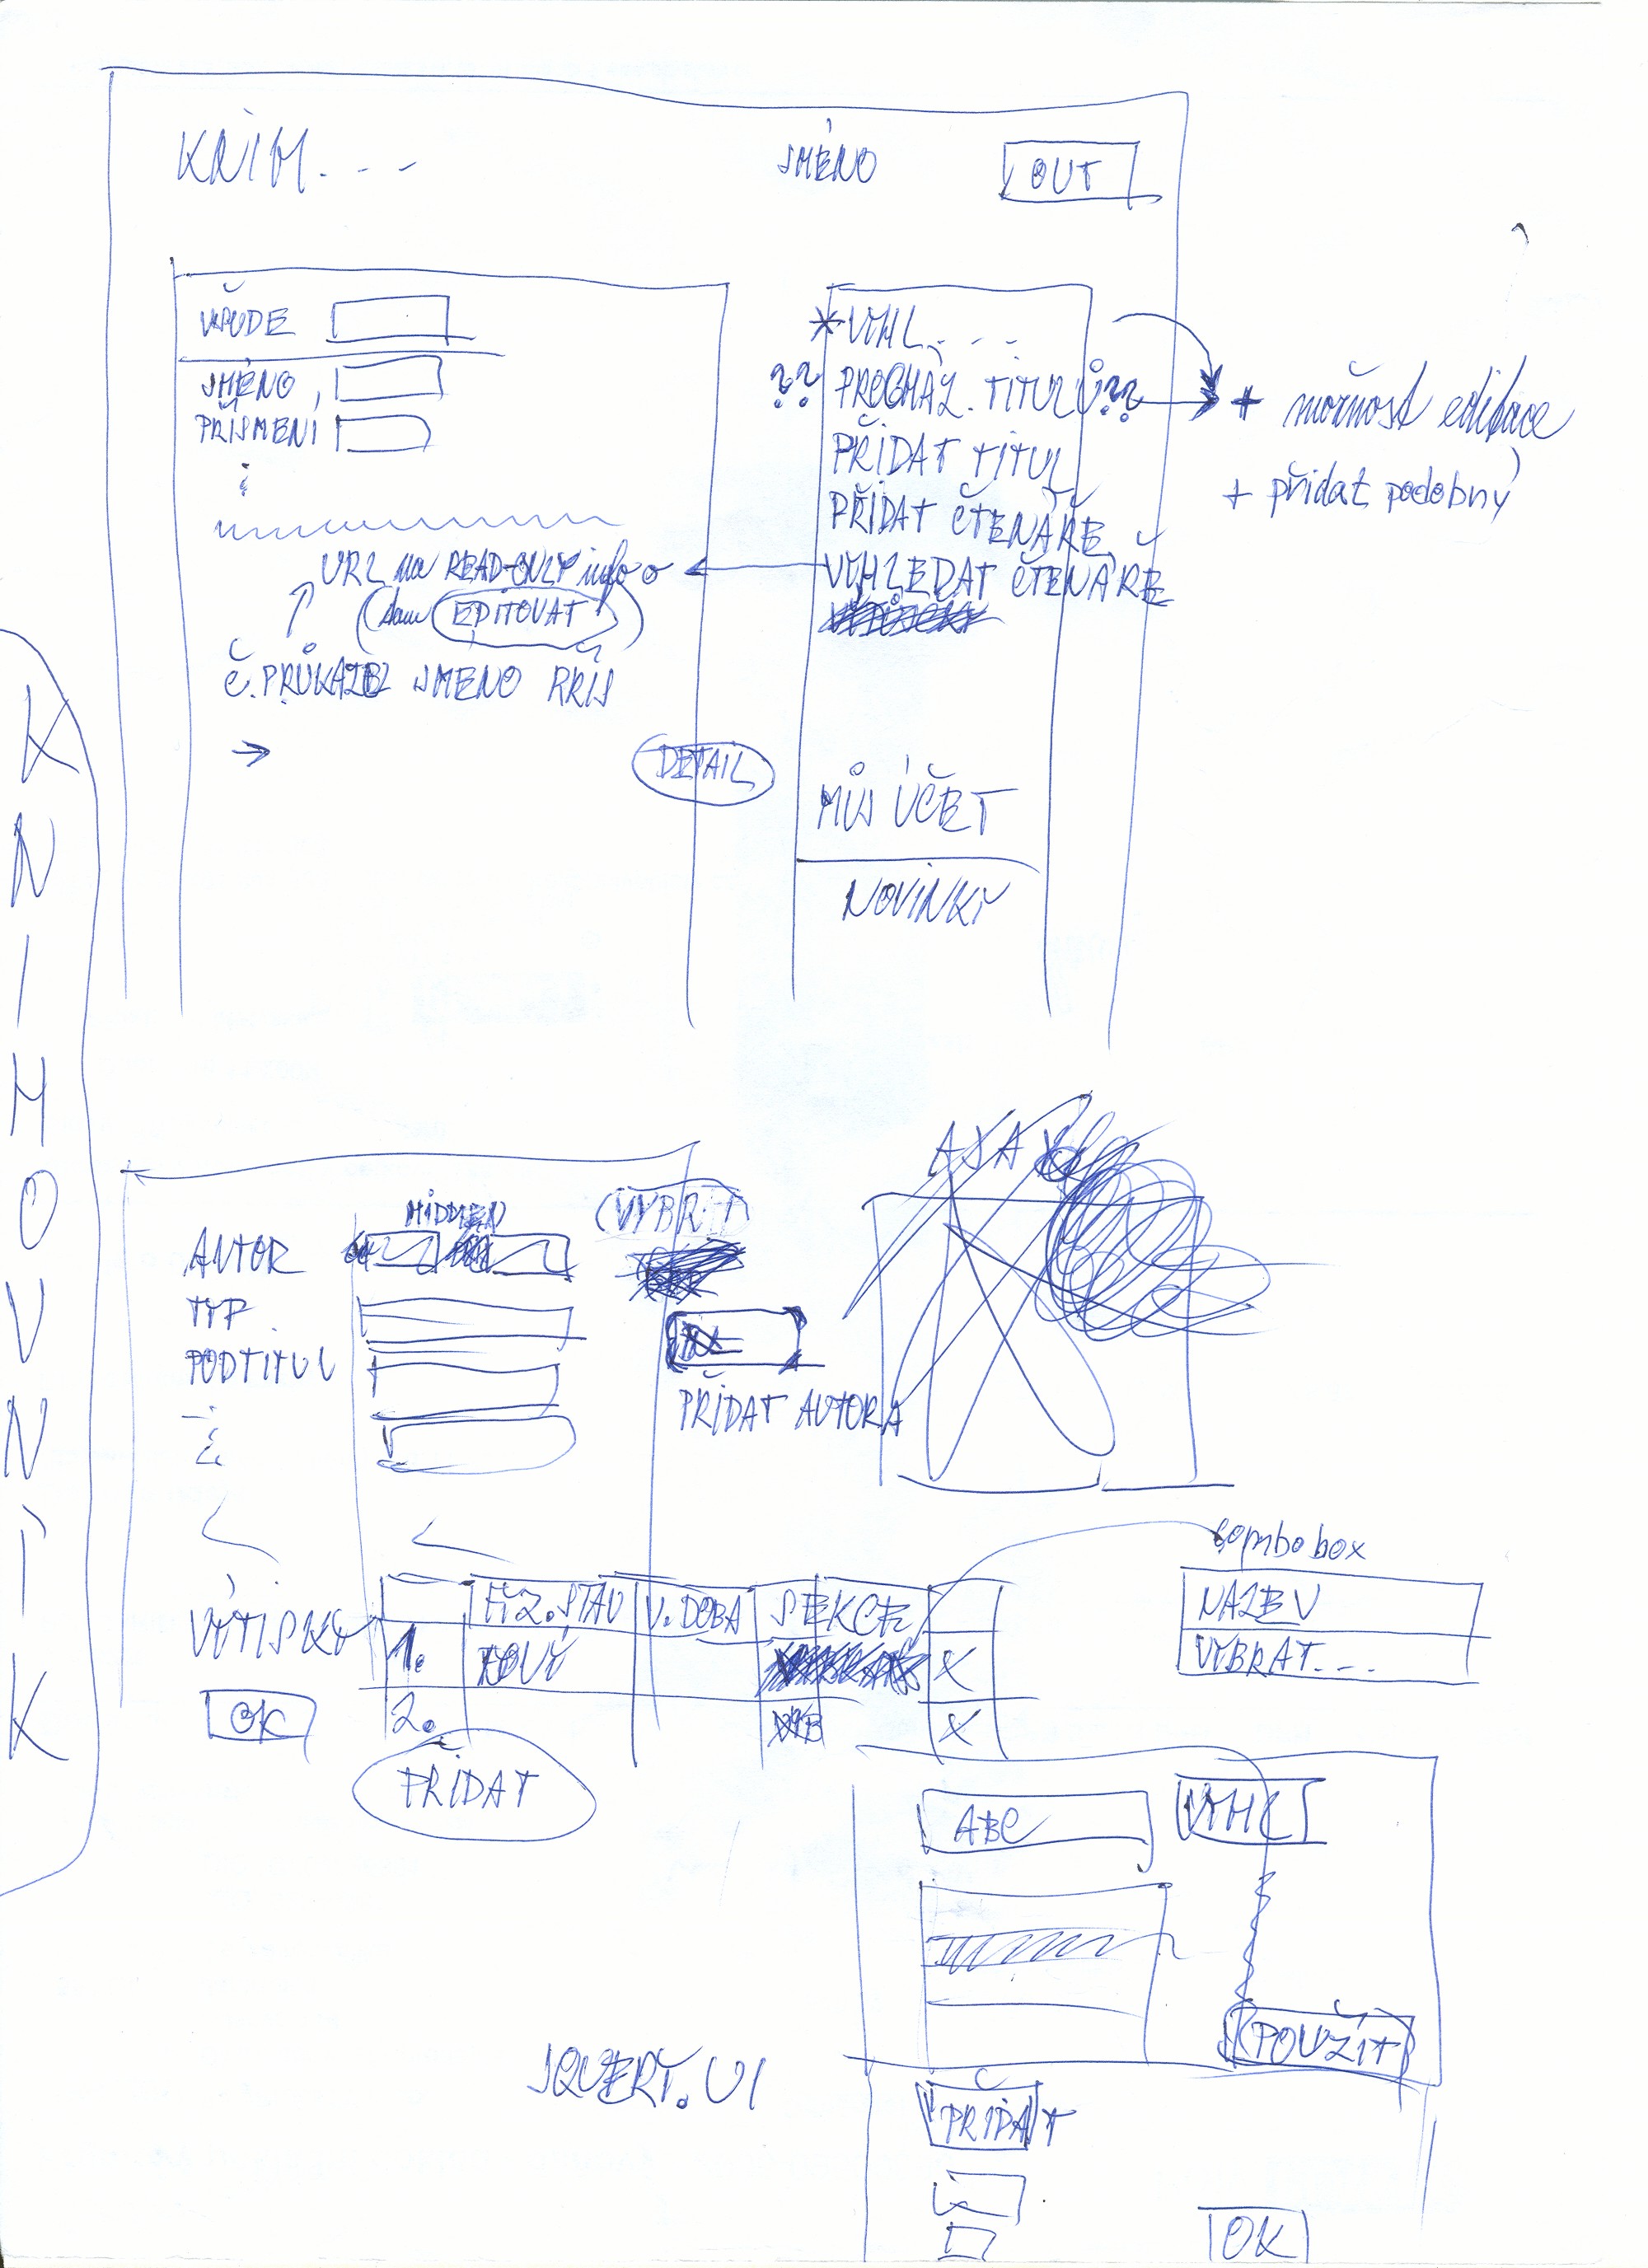 KNIH...
JMÉNO
OUT
VŠUDE
JMÉNO,
PŘÍJMENÍ
URL na READ-ONLY info
(tam EDITOVAT)
Č. PRŮKAZU JMÉNO PŘÍJ
DETAIL
*VYHL...
?? PROCHÁZ. TITULŮ??
PŘIDAT TITUL
PŘIDAT ČTENÁŘE
VYHLEDAT ČTENÁŘE
MŮJ ÚČET
NOVINKY
+ možnost editace
+ přidat podobný
KNIHOVNÍK
AJAX
HIDDEN
VYBRAT
AUTOR
TYP
PODTITUL
PŘIDAT AUTORA
VÝTISKY
FYZ. STAV
V. DOBA
SEKCE
1.
NOVÝ
X
2.
X
OK
PŘIDAT
combo box
NÁZEV
VYBRAT...
ABC
VYHL
POUŽÍT
JQUERY.UI
PŘIDAT
OK